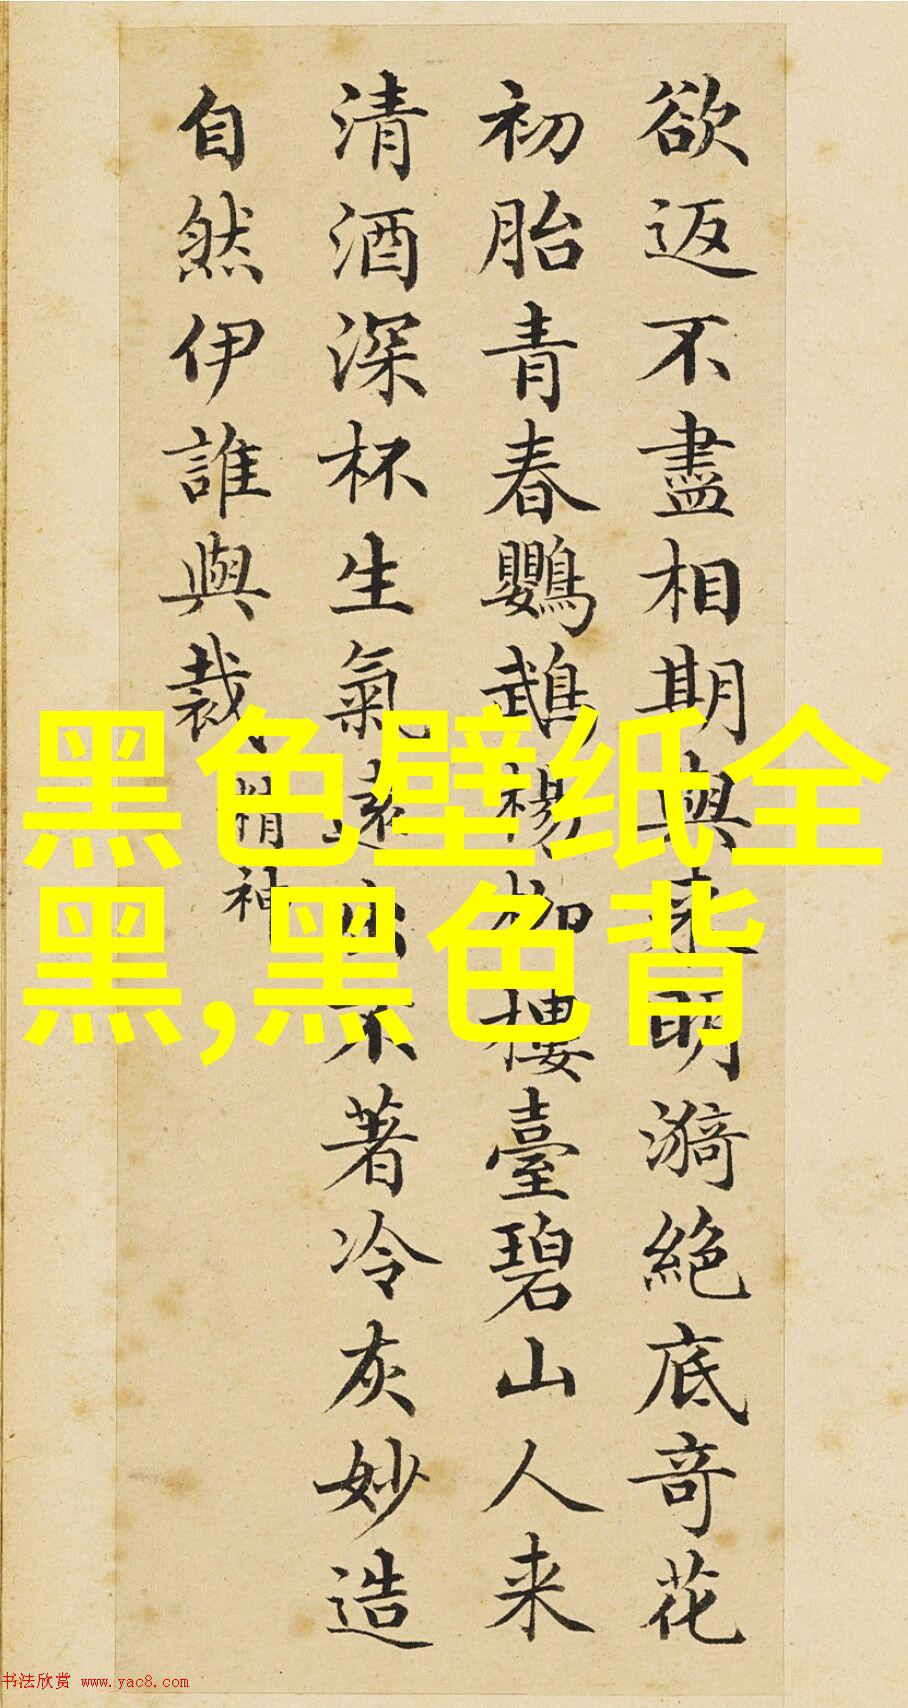 欲返不盡相期與来明漪絶底奇花
初胎青春鸚鵡楊柳樓臺碧山人来
清酒深杯生氣遠出不著冷灰妙造
自然伊誰與裁
精神
黑色壁纸全
黑,黑色背
书法欣赏 www.yac8.com